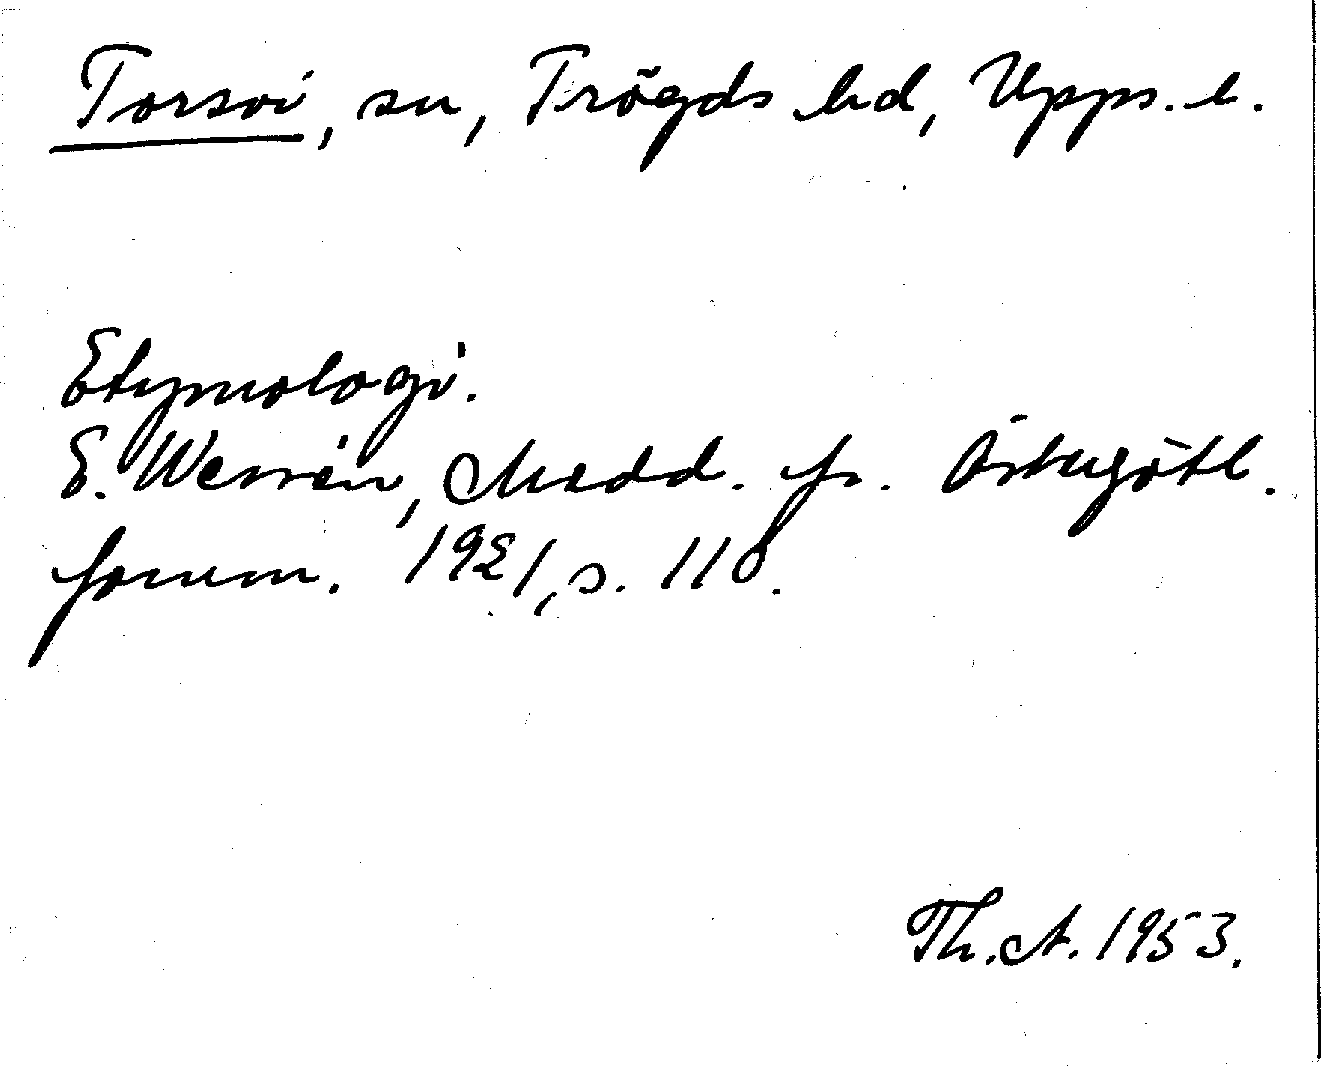 Torsvi, sn, Trögds hd, Upps. l.
Etymologi.
E. Wessén, Medd. fr. Östergötl.
fornm. 1921, s. 118.
Th. A. 1953.